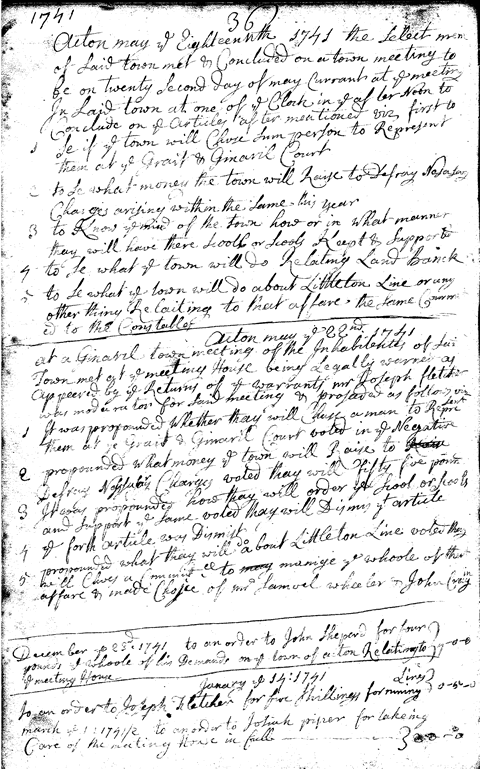 1741
36
Acton may ye Eighteennth 1741 the Select men
of Said town met & Concluded on a town meeting to
be on twenty Second Day of may Currant at ye meeting
In Said town at one of ye Clock in ye after Noon to
Conclude on ye Articles after mentioned viz first to
1 Se if ye town will Chuse Sum person to Represent
them at ye Grait & Ginaril Court
2 to Se what money the town will Raise to Defray
Charges arising within the Same this year
3 to Know ye mind of the town how or in what manner
thay will have there Scool or Scools Keept & Support
4 to Se what ye town will Do Relating Land Banck
5 to Se what ye town will do about Littleton Line or any
other thing Relaiting to that affare the Same Comm
ed to the Constable
Acton may ye 22nd 1741
at a Ginaril town meeting of the Inhabitents of Sai
Town met at ye meeting House being Legally warned as
Appeared by ye Returns of ye Warrants mr Joseph Fletcher
was moderator for Said meeting & proseded as follows viz
1 It was propounded Whether thay will Chuse a man to Repre sent
them at ye Grait & Ginaril Court voted in ye Negative
2 propounded what money ye town will Raise to
Defray Charges voted thay will Fifty five poun
3 It was propounded how thay will order ye Scool or Scools
and Support ye Same voted thay will Dismis ye article
4 ye forth article was Dismist
5 propounded what thay will do about Littleton Line voted thay
will Chuse a to manige ye whoole of that
affare & made Choise of mr Samuel wheeler & John
December ye 23d: 1741 to an order to John Sheperd for four
pounds ye whoole of his Demands on ye town of acton Relating to
ye meeting House
January ye 14: 1741
to an order to Joseph Fletcher for five Shillings for runing Lines
march ye 1: 1741/2 to an order to Josiah piper for takeing
Care of the meeting House in full